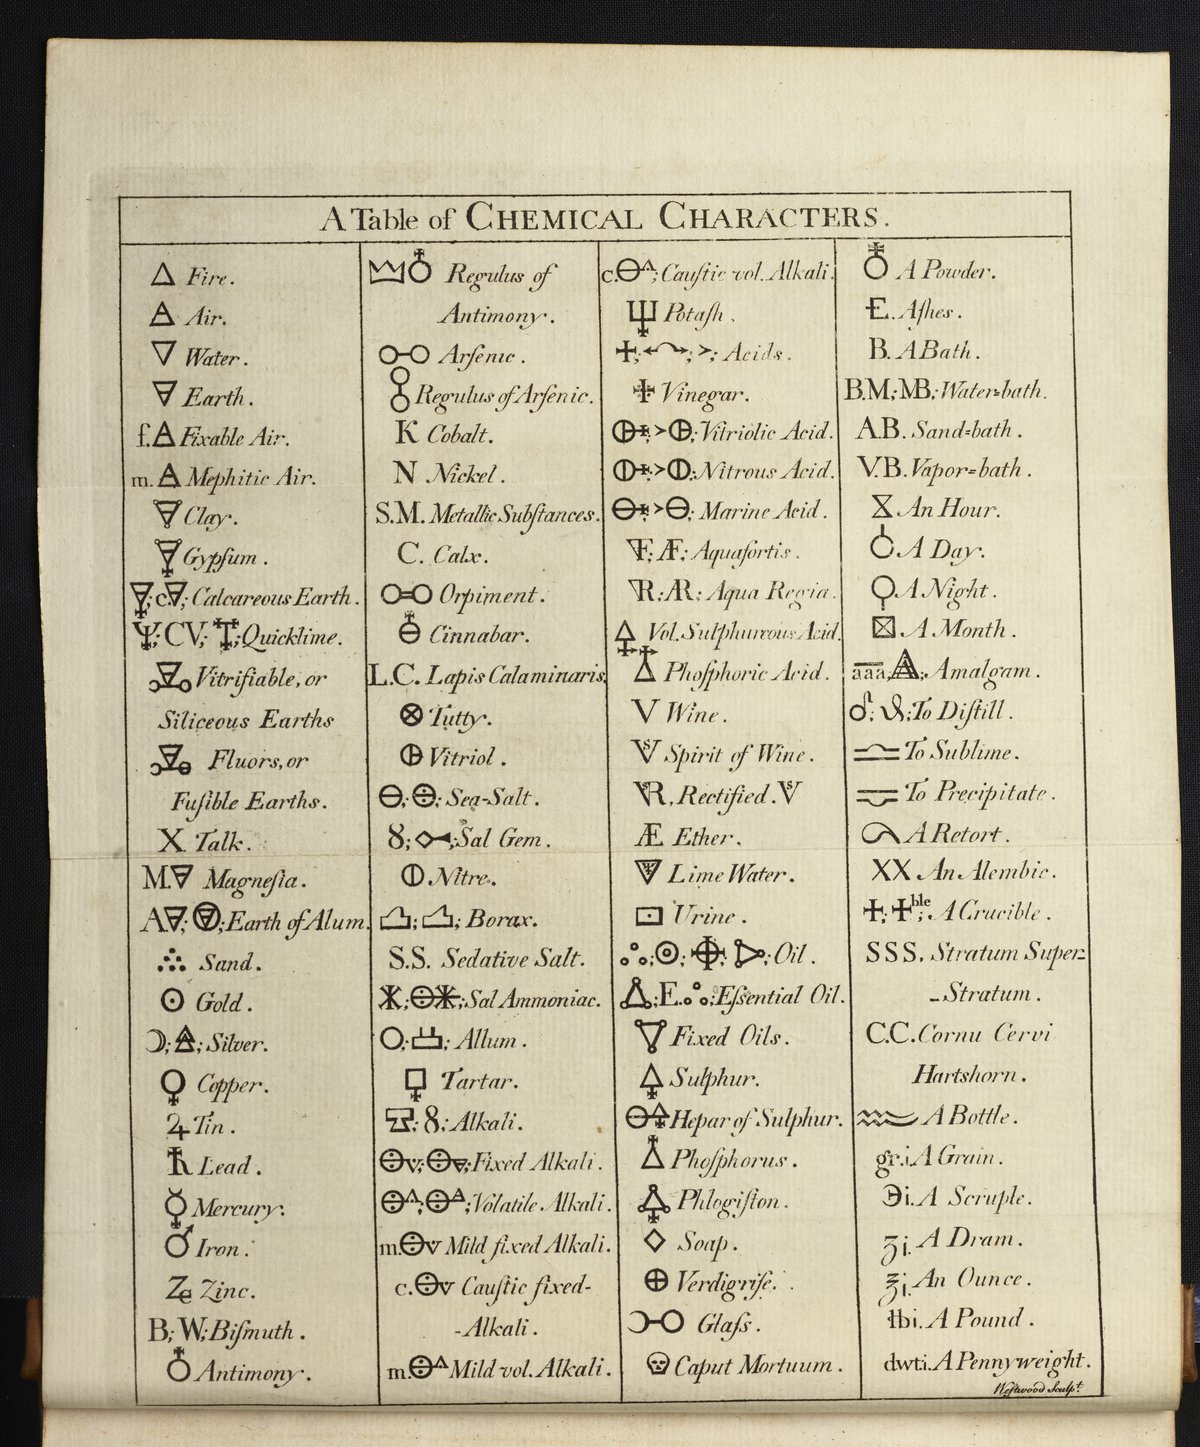 A Table of CHEMICAL CHARACTERS.
🜂 Fire.
🜁 Air.
🜄 Water.
🜃 Earth.
f.🜁 Fixable Air.
m.🜁 Mephitic Air.
Clay.
Gypſum.
; c.🜃; Calcareous Earth.
; CV; ; Quicklime.
Vitrifiable, or
Siliceous Earths
Fluors, or
Fuſible Earths.
X Talk.
M.🜃 Magneſia.
A🜃; ; Earth of Alum.
Sand.
☉ Gold.
☽; ; Silver.
♀ Copper.
♃ Tin.
♄ Lead.
☿ Mercury.
♂ Iron.
Ze Zinc.
B; W; Biſmuth.
♁ Antimony.
♁ Regulus of
Antimony.
Arſenic.
Regulus of Arſenic.
K Cobalt.
N Nickel.
S.M. Metallic Subſtances.
C. Calx.
Orpiment.
Cinnabar.
L.C. Lapis Calaminaris.
⊗ Tutty.
Vitriol.
⊖; ; Sea-Salt.
8; ; Sal Gem.
⦶ Nitre.
; ; Borax.
S.S. Sedative Salt.
; ; Sal Ammoniac.
O; ; Allum.
Tartar.
; 8; Alkali.
v; ; Fixed Alkali.
; ; Volatile Alkali.
m. v Mild fixed Alkali.
c. v Cauſtic fixed-
-Alkali.
m. Mild vol. Alkali.
c. ; Cauſtic vol. Alkali.
Potaſh.
+; ; >; Acids.
Vinegar.
; >; Vitriolic Acid.
⦶; >⦶; Nitrous Acid.
⊖; >⊖; Marine Acid.
; Æ; Aquafortis.
; ; Aqua Regia.
Vol. Sulphureous Acid.
Phoſphoric Acid.
V Wine.
Spirit of Wine.
R. Rectified.
Æ Ether.
Lime Water.
Urine.
; ☉; ; ; Oil.
; E. ; Eſsential Oil.
Fixed Oils.
🜍 Sulphur.
Hepar of Sulphur.
Phoſphorus.
Phlogiſton.
◇ Soap.
⊕ Verdigriſe.
Glaſs.
Caput Mortuum.
A Powder.
E. Aſhes.
B. A Bath.
B.M; MB; Water=bath.
A.B. Sand=bath.
V.B. Vapor=bath.
An Hour.
A Day.
A Night.
A Month.
aaa, ; Amalgam.
; ; To Diſtill.
To Sublime.
To Precipitate.
A Retort.
XX An Alembic.
+; +ble; A Crucible.
SSS. Stratum Super=
-Stratum.
C.C. Cornu Cervi
Hartshorn.
A Bottle.
gr.i. A Grain.
℈i. A Scruple.
ʒi. A Dram.
℥i. An Ounce.
℔i. A Pound.
dwti. A Pennyweight.
Weſtwood Sculpt.